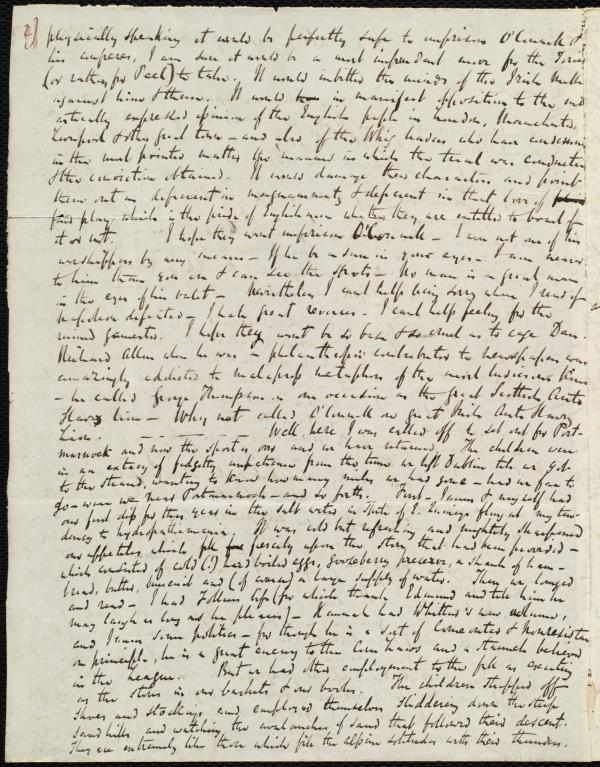 2)
physically speaking it would be perfectly safe to imprison O'Connell &
his compeers, I am sure it would be a most imprudent move for the Tories
(or rather, for Peel) to take. It would embitter the minds of the Irish
against him & them. It would be in manifest opposition to the
expressed opinion of the English people in London, Manchester,
Liverpool & other great towns – and also of the Whig leaders who have
in the most pointed matter the manner in which the trial was conducted
& the conviction obtained. It would damage their characters and point
them out as deficient in magnanimity & deficient in that love of
fair play, which is the pride of Englishmen whether they are entitled to boast of
it or not. I hope they wont imprison O'Connell – I am not one of his
worshippers by any means – If he be a sun in your eyes – I am nearer
to him than you are & can see the spots – No man is a great man
in the eyes of his valet – Nevertheless I cant help being sorry when I read of
Napoleon defeated – I hate great reverses – I cant help feeling for the
ruined gamester. I hope they wont be so base & so cruel as to cage Dan.
Richard Allen when he was a philanthropic contributor to newspapers was
amazingly addicted to malaprop metaphors of the most ludicrous kind
– he called George Thompson on one occasion as the great Scottish Anti
Slavery lion – Why not called O'Connell the great Irish Anti Slavery
Lion. Well, here I was called off to set out for Port-
marnock and now the sport is over and we have returned. The children were
in an extacy of fidgetty impatience from the time we left Dublin till we got
to the strand, wanting to know how many miles we had gone – had we far to
go – were we near Portmarnock – and so forth. First – James & myself had
our first dip for this year in the salt water in spite of E. Quincy's fling at my ten-
dency to hydropathomania. It was cold but refreshing and mightily sharpened
our appetites which fell fiercely upon the store that had been provided –
which consisted of cold (!) hard boiled eggs, gooseberry preserve, a shank of ham –
bread, butter, and (of course) a large supply of water. Then we lounged
and read – I had Follens life (for which thank Edmund and tell him he
may laugh as long as he pleases) – Hannah had Whittier's new volume,
and James some politics – for though he is a sort of Come outer & Nonresistant
on principle, he is a great enemy to the Corn Laws and a staunch believer
in the League. But we had other employment to the full as exciting
as the stores in our baskets & our books. The children stripped off
shoes and stockings and employed themselves sliddering down the steep
sand hills and watching the avalanches of sand that followed their descent.
They are extremely like those which fill the alpine solitudes with their thunders.